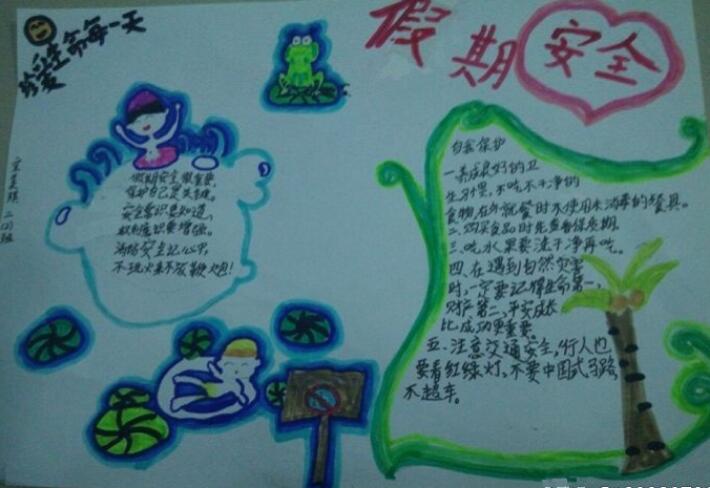 珍爱生命每一天
假期安全
假期安全很重要,
保护自己是关键。
安全常识要知道,
意识要增强。
安全记心中,
不玩火来不放鞭炮!
二(1)班
自我保护
一.养成良好的卫
生习惯,不吃不干净的
食物,在外就餐时不使用未消毒的餐具。
二.购买食品时先查看保质期。
三.吃水果要洗干净再吃。
四.在遇到自然灾害
时,一定要记牢生命第一,
财产第二,平安成长
比成功更重要。
五.注意交通安全,行人也
要看红绿灯,不要中国式马路,
不超车。